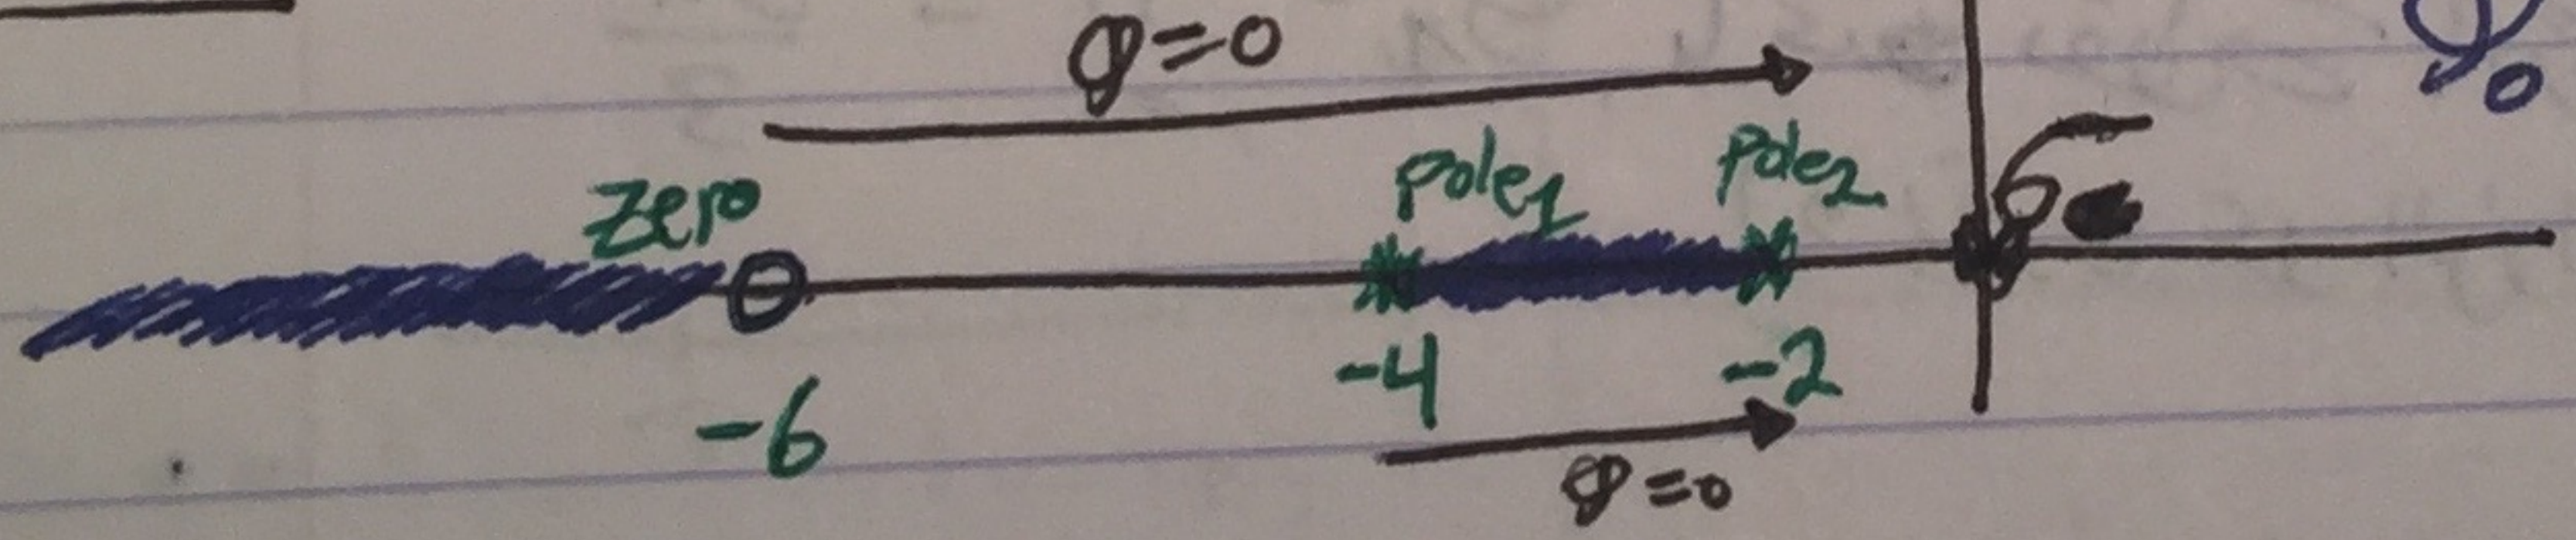 φ=0
zero
pole1
pole2
σ
-6
-4
-2
φ=0